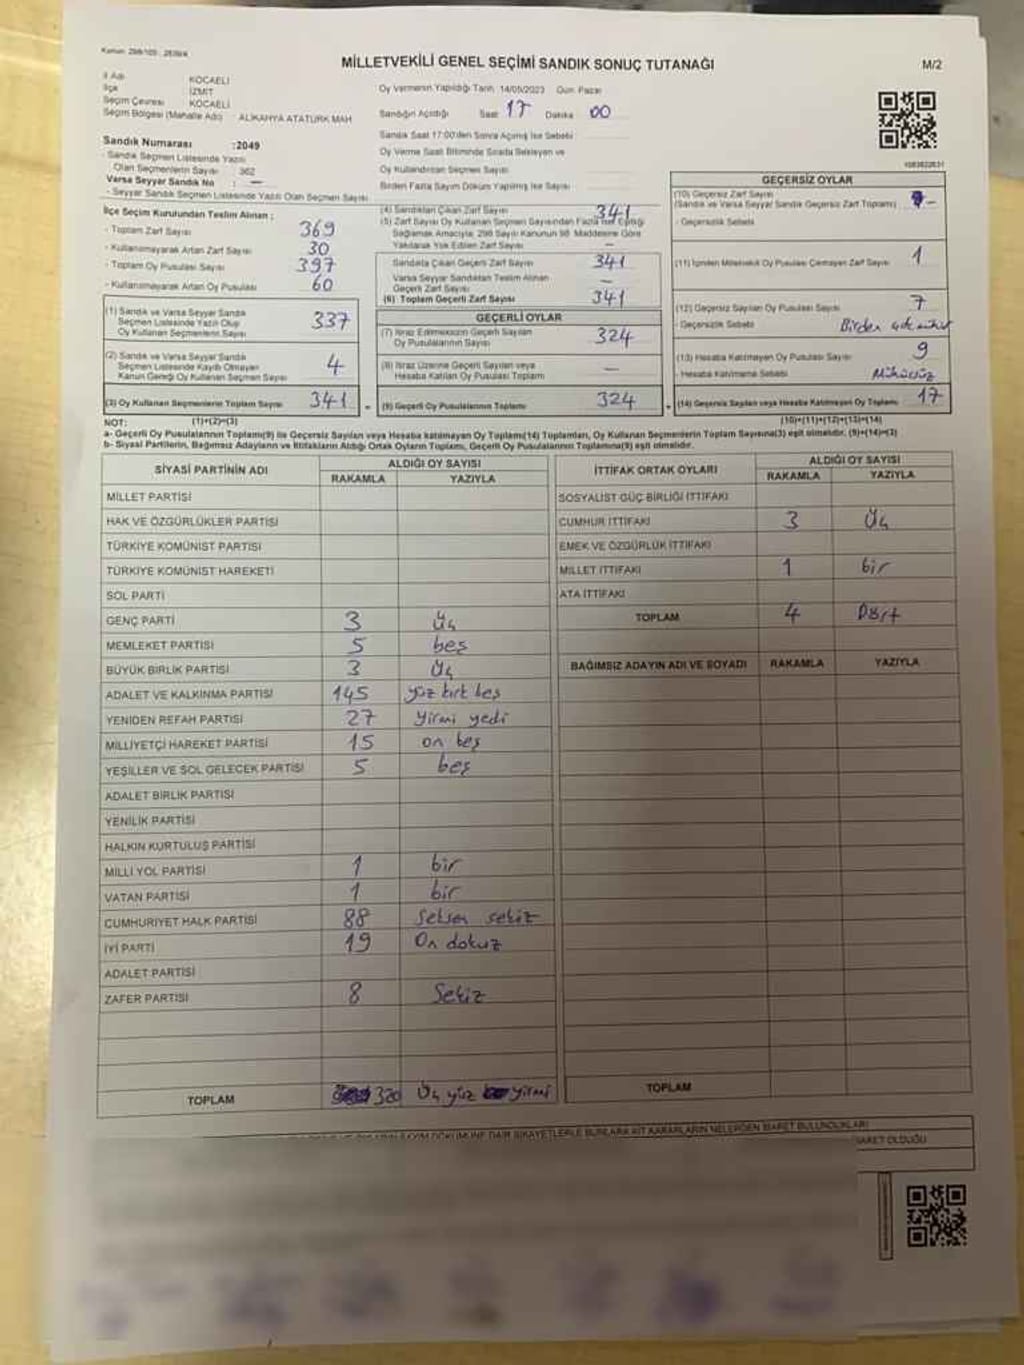 Kanun: 298/105 : 2839/4
MİLLETVEKİLİ GENEL SEÇİMİ SANDIK SONUÇ TUTANAĞI
M/2
İl Adı KOCAELİ
İlçe İZMİT
Seçim Çevresi KOCAELİ
Seçim Bölgesi (Mahalle Adı) ALİKAHYA ATATÜRK MAH
Sandık Numarası :2049
- Sandık Seçmen Listesinde Yazılı
Olan Seçmenlerin Sayısı 362
Varsa Seyyar Sandık No : —
- Seyyar Sandık Seçmen Listesinde Yazılı Olan Seçmen Sayısı
Oy Vermenin Yapıldığı Tarih 14/05/2023 Gün Pazar
Sandığın Açıldığı Saat 17 Dakika 00
Sandık Saat 17:00'den Sonra Açılmış İse Sebebi
Oy Verme Saati Bitiminde Sırada Bekleyen ve
Oy Kullandırılan Seçmen Sayısı
Birden Fazla Sayım Döküm Yapılmış İse Sayısı
İlçe Seçim Kurulundan Teslim Alınan ;
- Toplam Zarf Sayısı 369
- Kullanılmayarak Artan Zarf Sayısı 30
- Toplam Oy Pusulası Sayısı 397
- Kullanılmayarak Artan Oy Pusulası 60
(1) Sandık ve Varsa Seyyar Sandık
Seçmen Listesinde Yazılı Olup
Oy Kullanan Seçmenlerin Sayısı 337
(2) Sandık ve Varsa Seyyar Sandık
Seçmen Listesinde Kayıtlı Olmayan
Kanun Gereği Oy Kullanan Seçmen Sayısı 4
(3) Oy Kullanan Seçmenlerin Toplam Sayısı 341
(1)+(2)=(3)
(4) Sandıktan Çıkan Zarf Sayısı 341
(5) Zarf Sayısı Oy Kullanan Seçmen Sayısından Fazla İse Eşitliği
Sağlamak Amacıyla; 298 Sayılı Kanunun 98. Maddesine Göre
Yakılarak Yok Edilen Zarf Sayısı —
Sandıkta Çıkan Geçerli Zarf Sayısı 341
Varsa Seyyar Sandıktan Teslim Alınan
Geçerli Zarf Sayısı —
(6) Toplam Geçerli Zarf Sayısı 341
GEÇERLİ OYLAR
(7) İtiraz Edilmeksizin Geçerli Sayılan
Oy Pusulalarının Sayısı 324
(8) İtiraz Üzerine Geçerli Sayılan veya
Hesaba Katılan Oy Pusulası Toplamı —
(9) Geçerli Oy Pusulalarının Toplamı 324
GEÇERSİZ OYLAR
(10) Geçersiz Zarf Sayısı
(Sandık ve Varsa Seyyar Sandık Geçersiz Zarf Toplamı) -
- Geçersizlik Sebebi
(11) İçinden Milletvekili Oy Pusulası Çıkmayan Zarf Sayısı 1
(12) Geçersiz Sayılan Oy Pusulası Sayısı 7
- Geçersizlik Sebebi Birden çok mühür
(13) Hesaba Katılmayan Oy Pusulası Sayısı 9
- Hesaba Katılmama Sebebi Mühürsüz
(14) Geçersiz Sayılan veya Hesaba Katılmayan Oy Toplamı 17
(10)+(11)+(12)+(13)=(14)
NOT:
a- Geçerli Oy Pusulalarının Toplamı(9) ile Geçersiz Sayılan veya Hesaba katılmayan Oy Toplamı(14) Toplamları, Oy Kullanan Seçmenlerin Toplam Sayısına(3) eşit olmalıdır. (9)+(14)=(3)
b- Siyasi Partilerin, Bağımsız Adayların ve İttifakların Aldığı Ortak Oyların Toplamı, Geçerli Oy Pusulalarının Toplamına(9) eşit olmalıdır.
SİYASİ PARTİNİN ADI ALDIĞI OY SAYISI
RAKAMLA YAZIYLA
MİLLET PARTİSİ
HAK VE ÖZGÜRLÜKLER PARTİSİ
TÜRKİYE KOMÜNİST PARTİSİ
TÜRKİYE KOMÜNİST HAREKETİ
SOL PARTİ
GENÇ PARTİ 3 Üç
MEMLEKET PARTİSİ 5 beş
BÜYÜK BİRLİK PARTİSİ 3 Üç
ADALET VE KALKINMA PARTİSİ 145 yüz kırk beş
YENİDEN REFAH PARTİSİ 27 yirmi yedi
MİLLİYETÇİ HAREKET PARTİSİ 15 on beş
YEŞİLLER VE SOL GELECEK PARTİSİ 5 beş
ADALET BİRLİK PARTİSİ
YENİLİK PARTİSİ
HALKIN KURTULUŞ PARTİSİ
MİLLİ YOL PARTİSİ 1 bir
VATAN PARTİSİ 1 bir
CUMHURİYET HALK PARTİSİ 88 Seksen sekiz
İYİ PARTİ 19 On dokuz
ADALET PARTİSİ
ZAFER PARTİSİ 8 Sekiz
TOPLAM 320 Üç yüz yirmi
İTTİFAK ORTAK OYLARI ALDIĞI OY SAYISI
RAKAMLA YAZIYLA
SOSYALİST GÜÇ BİRLİĞİ İTTİFAKI
CUMHUR İTTİFAKI 3 Üç
EMEK VE ÖZGÜRLÜK İTTİFAKI
MİLLET İTTİFAKI 1 bir
ATA İTTİFAKI
TOPLAM 4 Dört
BAĞIMSIZ ADAYIN ADI VE SOYADI RAKAMLA YAZIYLA
TOPLAM